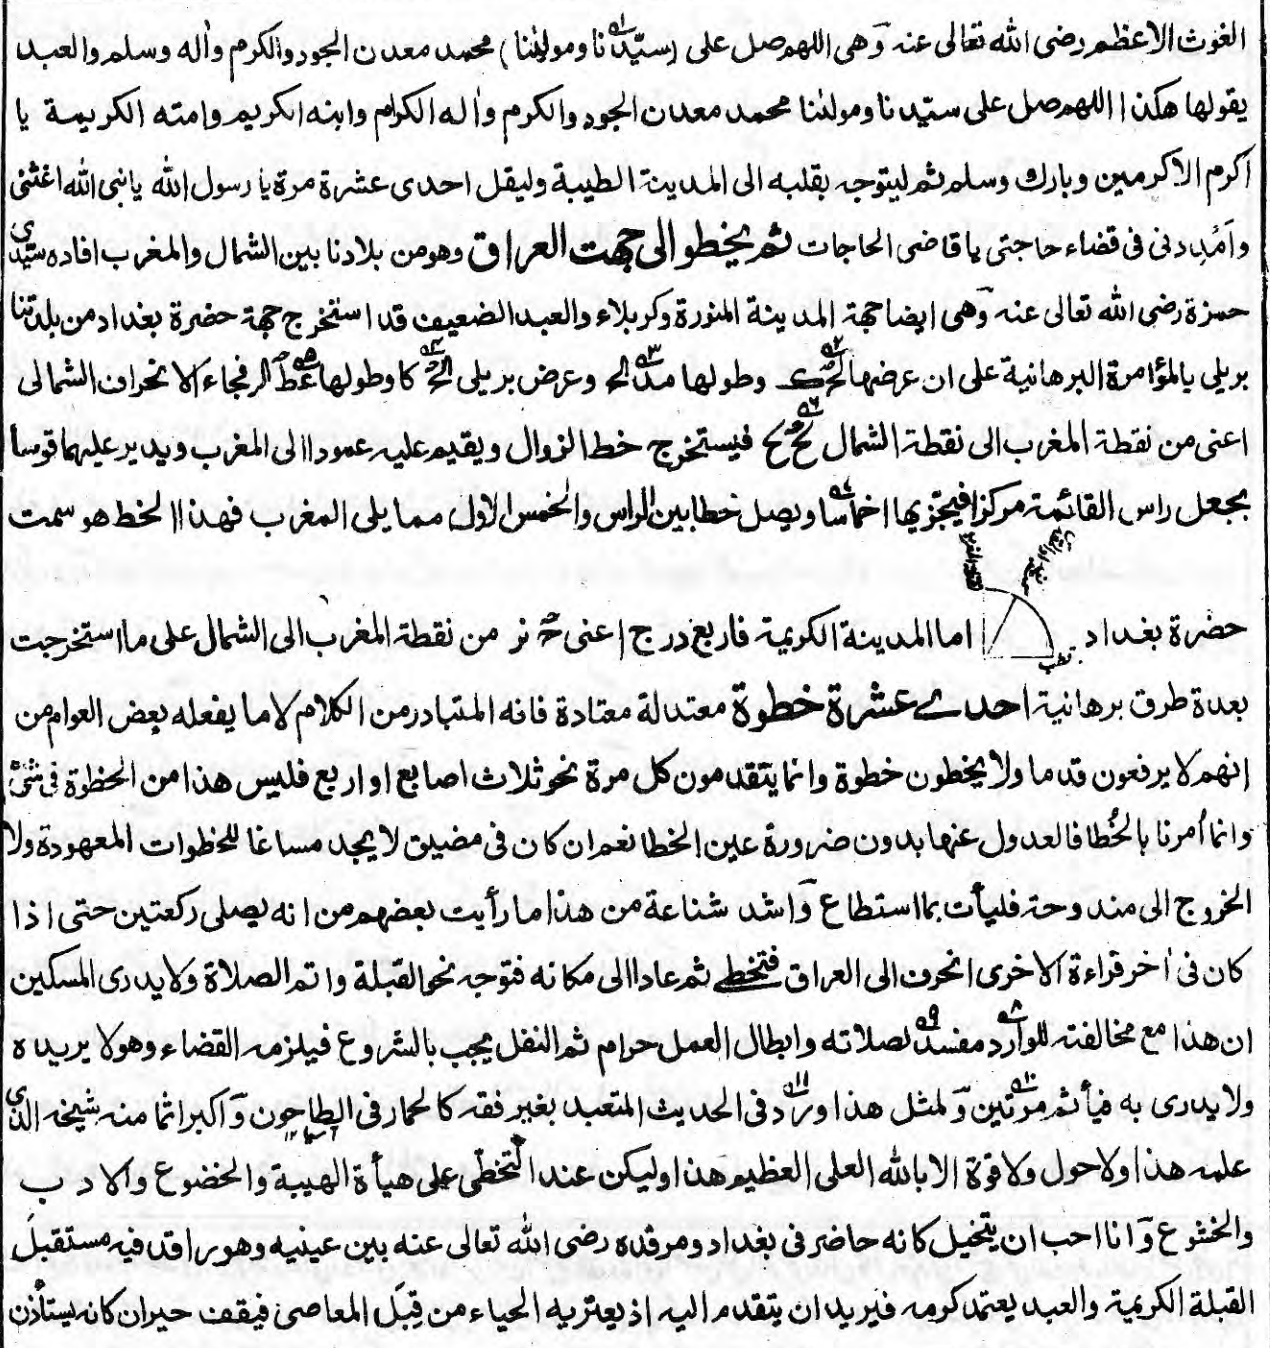 الغوث الاعظم رضى الله تعالى عنه وهى اللهم صل على (سيّدنا ومولٰنا) محمد معدن الجود والكرم واٰله وسلم والعبد
يقولها هكذا اللهم صل على سيّدنا ومولٰنا محمد معدن الجود والكرم واٰله الكرام وابنه الكريم وامته الكريمة يا
اكرم الاكرمين وبارك وسلم ثم ليتوجه بقلبه الى المدينة الطيبة وليقل احدى عشرة مرة يا رسول الله يا نبى الله اغثنى
وامددنى فى قضاء حاجتى يا قاضى الحاجات ثم يخطو الى جهت العراق وهو من بلادنا بين الشمال والمغرب افاده سيّدى
حمزة رضى الله تعالى عنه وهى ايضا جهة المدينة المنورة وكربلاء والعبد الضعيف قد استخرج جهة حضرة بغداد من بلدتنا
بريلى بالمؤامرة البرهانية على ان عرضها وطولها وعرض بريلى كا وطولها فجاء الانحراف الشمالى
اعنى من نقطة المغرب الى نقطة الشمال فيستخرج خط الزوال ويقيم عليه عمودا الى المغرب ويدير عليهما قوسا
بجعل راس القائمة مركزا فيجزيها اخماسا ويصل خطا بين الراس والخمس الاول مما يلى المغرب فهذا الخط هو سمت
حضرة بغداد اما المدينة الكريمة فاربع درج اعنى من نقطة المغرب الى الشمال على ما استخرجت
بعدة طرق برهانية احدى عشرة خطوة معتدلة معتادة فانه المتبادر من الكلام لا ما يفعله بعض العوام من
انهم لا يرفعون قدما ولا يخطون خطوة وانما يتقدمون كل مرة نحو ثلاث اصابع او اربع فليس هذا من الخطوة فى شئ
وانما اُمرنا بالخُطا فالعدول عنها بدون ضرورة عين الخطا نعم ان كان فى مضيق لا يجد مساغا للخطوات المعهودة ولا
الخروج الى مندوحة فليأت بما استطاع واشد شناعة من هذا ما رأيت بعضهم من انه يصلى ركعتين حتى اذا
كان فى اٰخر قراءة الاخرى انحرف الى العراق فتخطى ثم عاد الى مكانه فتوجه نحو القبلة واتم الصلاة ولا يدرى المسكين
ان هذا مع مخالفته للوارد مفسد لصلاته وابطال العمل حرام ثم النفل يجب بالشروع فيلزمه القضاء وهو لا يريده
ولا يدرى به فيأثم مرتين ولمثل هذا ورد فى الحديث المتعبد بغير فقه كالحمار فى الطاحون واكبر اثما منه شيخه الذى
علمه هذا ولا حول ولا قوة الا بالله العلى العظيم هذا وليكن عند التخطى على هيأة الهيبة والخضوع والادب
والخشوع وانا احب ان يتخيل كانه حاضر فى بغداد ومرقده رضى الله تعالى عنه بين عينيه وهو راقد فيه مستقبل
القبلة الكريمة والعبد يعتمد كرمه فيريد ان يتقدم اليه اذ يعتريه الحياء من قِبَل المعاصى فيقف حيران كانه يستأذن